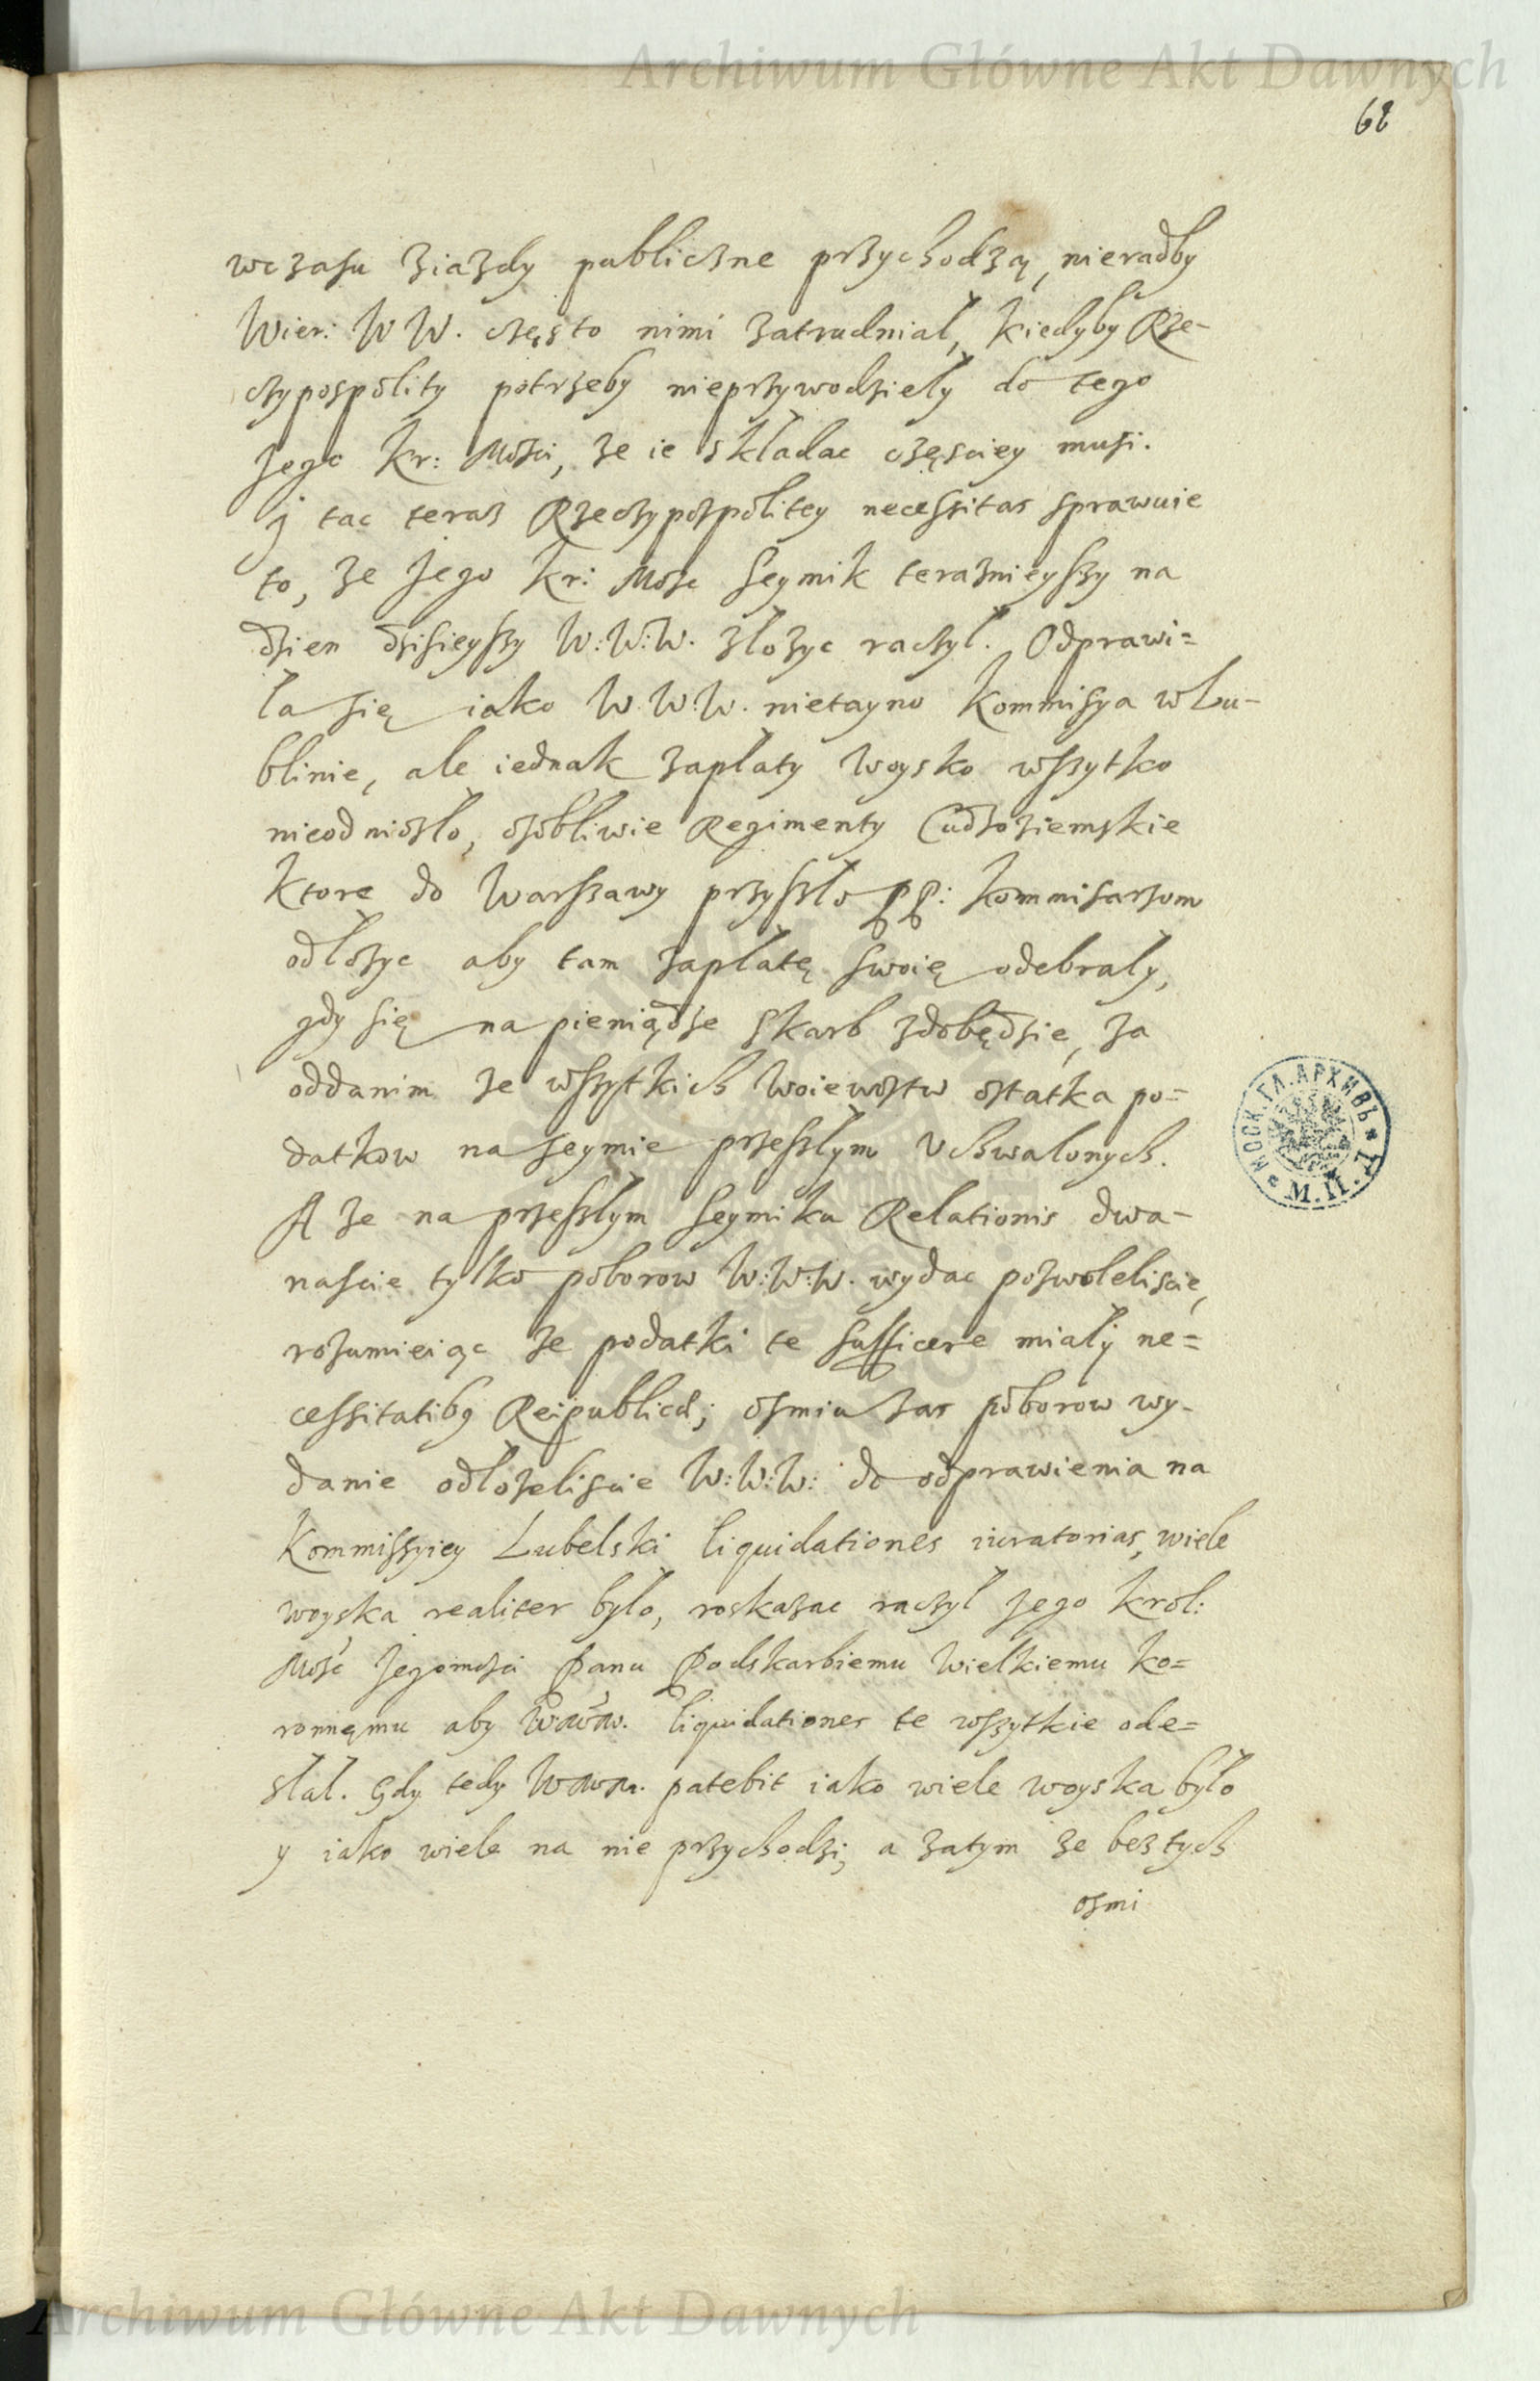 Archiwum Główne Akt Dawnych
68
wczasu ziazdy publiczne przychodzą, nieradby
Wier: W W. często nimi zatrudniał, kiedyby Rze-
czypospolity potrzeby nieprzywodziely do tego
Jego Kr: Mości, ze ie składac częsciey musi.
J tac teraz Rzeczypospolitey necessitas sprawuie
to, ze Jego Kr: Mosc Seymik teraznieyszy na
dzien dzisieyszy W:W:W. złozyc raczył. Odprawi=
ła się iako W.W:W. nietayno Kommisya w Lu-
blinie, ale iednak zapłaty woysko wszytko
nieodniosło, osobliwie Regimenty Cudzoziemskie
Ktore do Warszawy przyszło PP: Kommisarzom
odłozyc aby tam zapłatę swoię odebrały,
gdy się na pieniądze Skarb zdobędzie, za
oddanim ze wszytkich Woiewostw ostatka po=
datkow na seymie przeszłym uchwalonych.
A ze na przeszłym Seymiku Relationis dwa-
nascie tylko poborow W:W:W. wydac pozwoleliscie,
rozumieiąc ze podatki te sufficere miały ne=
cessitatibq Reipublicæ; osmiu zas poborow wy-
danie odłozeliscie W:W:W: do odprawienia na
Kommissyiey Lubelski liquidationes iuratorias, wiele
woyska realiter było, roskazac raczył Jego Krol:
Mość Jegomości Panu Podskarbiemu Wielkiemu Ko=
ronnęmu aby liquidationes te wszytkie ode=
słał. Gdy tedy patebit iako wiele woyska było
y iako wiele na nie przychodzi, a zatym ze bez tych
osmi
МОСК. ГЛ. АРХИВЪ М.И.Д.
Archiwum Główne Akt Dawnych